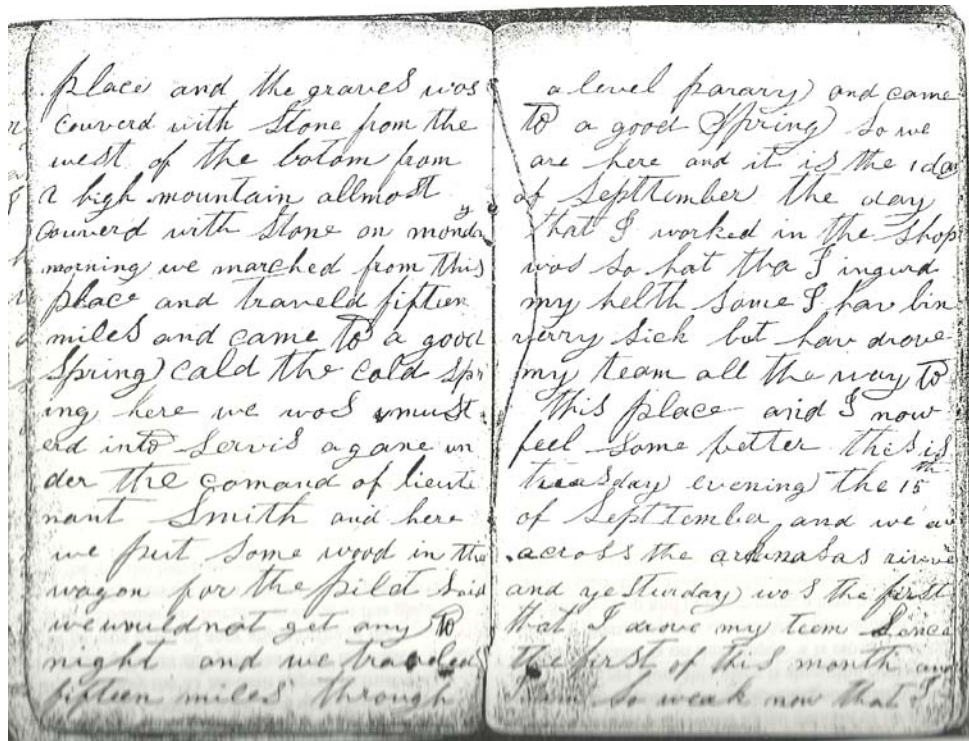 place and the graves was
couverd with Stone from the
west of the botom from
a high mountain allmost
couverd with Stone on monday
morning we marched from this
place and traveld fifteen
miles and came to a good
Spring cald the cold Spr
ing here we was must
erd into Servis agane un
der the comand of lieute
nant Smith and here
we put Some wood in the
wagon for the pilot Said
we would not get any to
night and we traveled
fifteen miles through
a level parary and came
to a good Spring So we
are here and it is the 1 day
of Septtember the day
that I worked in the Shop
was So hot tha I ingurd
my helth Some I hav bin
verry Sick but hav drove
my team all the way to
this place and I now
feel Some better this is
tuesday evening the 15th
of Septtember and we are
across the arkansas
and yesturday was the first
that I drove my teem Since
the first of this month and
I am So weak now that I